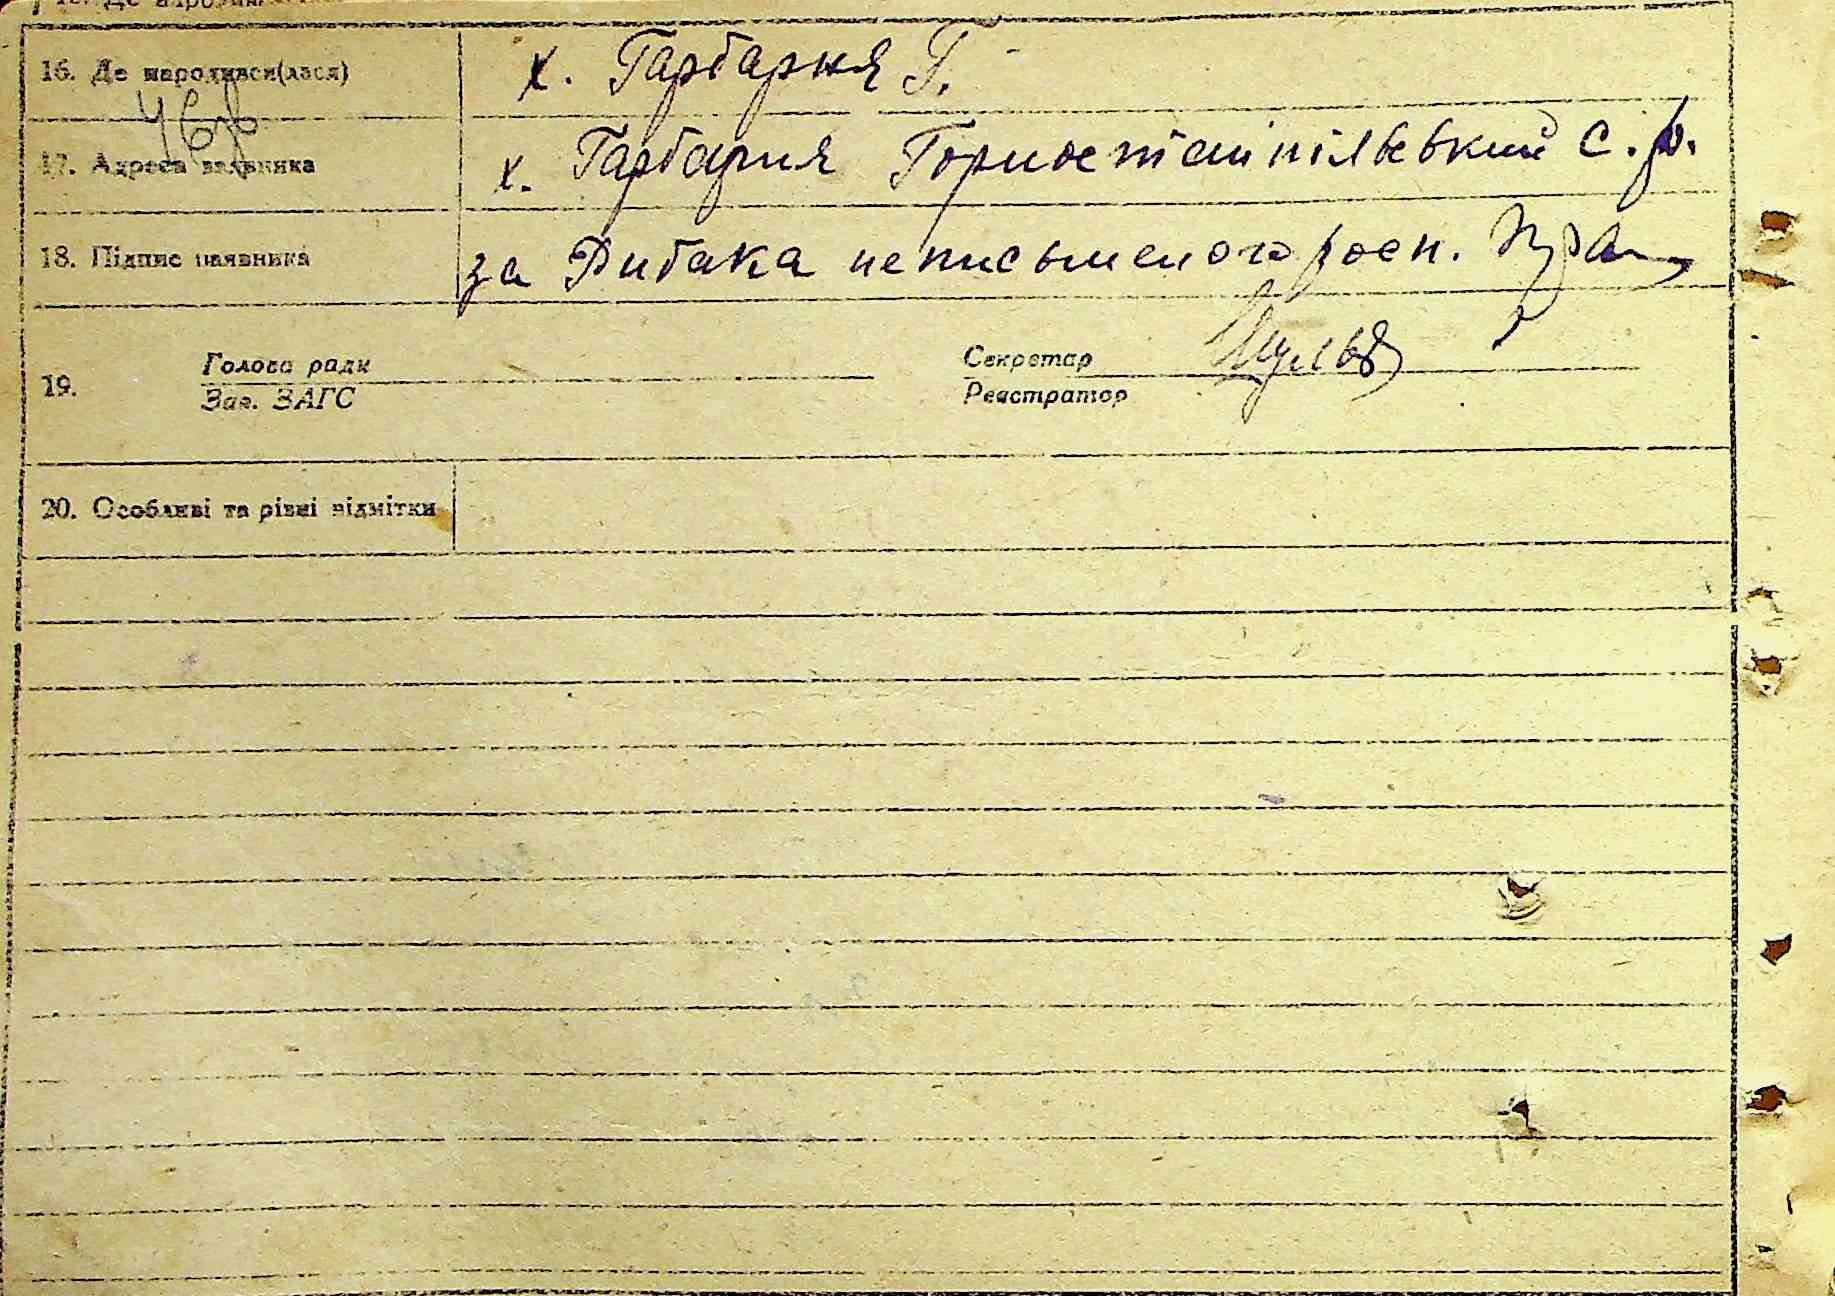 16. Де народився(лася) х. Гарбарня Г.
17. Адреса заявника х. Гарбарня Горностайпільський с. р.
18. Підпис заявника за Рибака неписьменого росп.
Голова ради Секретар
19.
Зав. ЗАГС Реєстратор
20. Особливі та різні відмітки